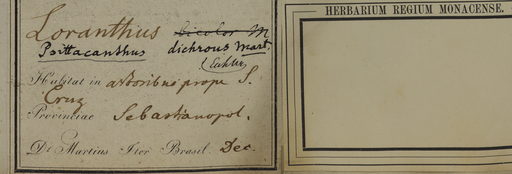 Loranthus bicolor M
Psittacanthus dichrous Mart.
(Eichler
Habitat in arboribus prope S.
Cruz
Provinciae Sebastianopol.
Dr Martius Iter Brasil. Dec.
HERBARIUM REGIUM MONACENSE.